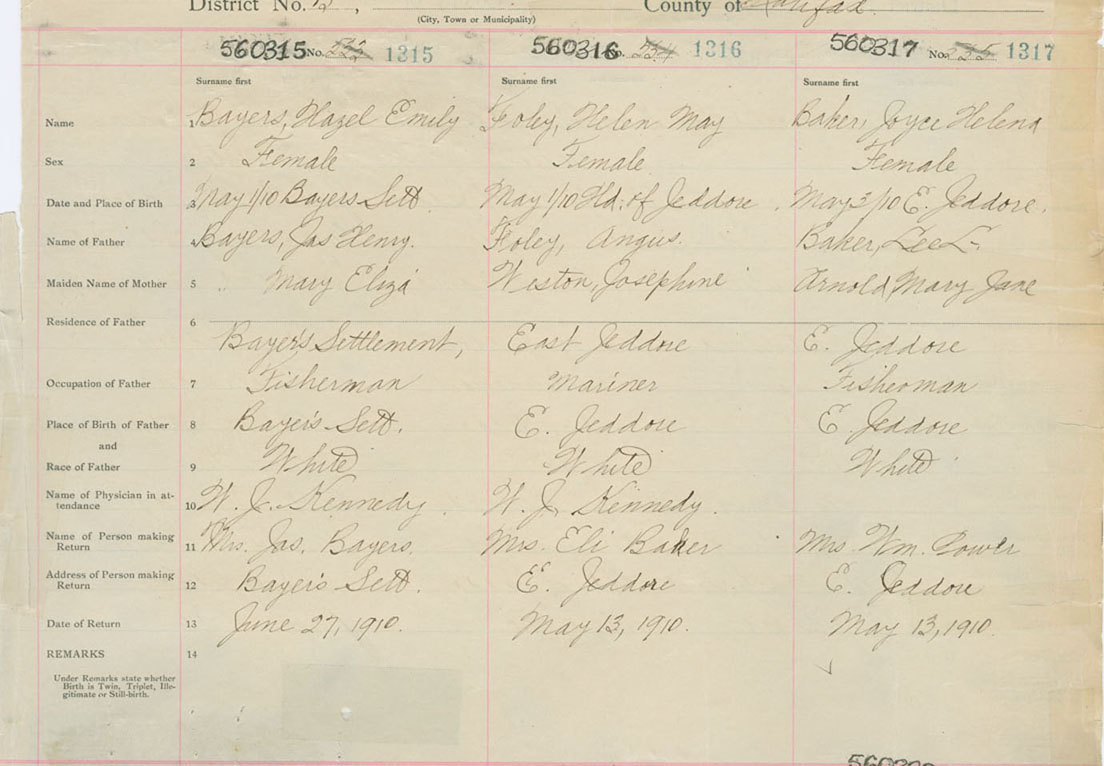 District No. , County of Halifax
(City, Town or Municipality)
560315 No. 1315 560316 No. 1316 560317 No. 1317
Surname first Surname first Surname first
Name 1 Bayers, Hazel Emily Foley, Helen May Baker, Joyce Helena
Sex 2 Female Female Female
Date and Place of Birth 3 May 1/10 Bayers Sett. May 1/10 Hd. of Jeddore May 3/10 E. Jeddore.
Name of Father 4 Bayers, Jas Henry. Foley, Angus. Baker, Lee L.
Maiden Name of Mother 5 " Mary Eliza Weston, Josephine Arnold, Mary Jane
Residence of Father 6
Bayer's Settlement, East Jeddore E. Jeddore
Occupation of Father 7 Fisherman Mariner Fisherman
Place of Birth of Father 8 Bayer's Sett. E. Jeddore E. Jeddore
and
Race of Father 9 White White White
Name of Physician in at-
tendance 10 W. J. Kennedy. W. J. Kennedy.
Name of Person making
Return 11 Mrs. Jas. Bayers. Mrs. Eli Baker Mrs Wm. Power
Address of Person making
Return 12 Bayer's Sett. E. Jeddore E. Jeddore
Date of Return 13 June 27, 1910. May 13, 1910. May 13, 1910.
REMARKS 14
Under Remarks state whether
Birth is Twin, Triplet, Ille-
gitimate or Still-birth.